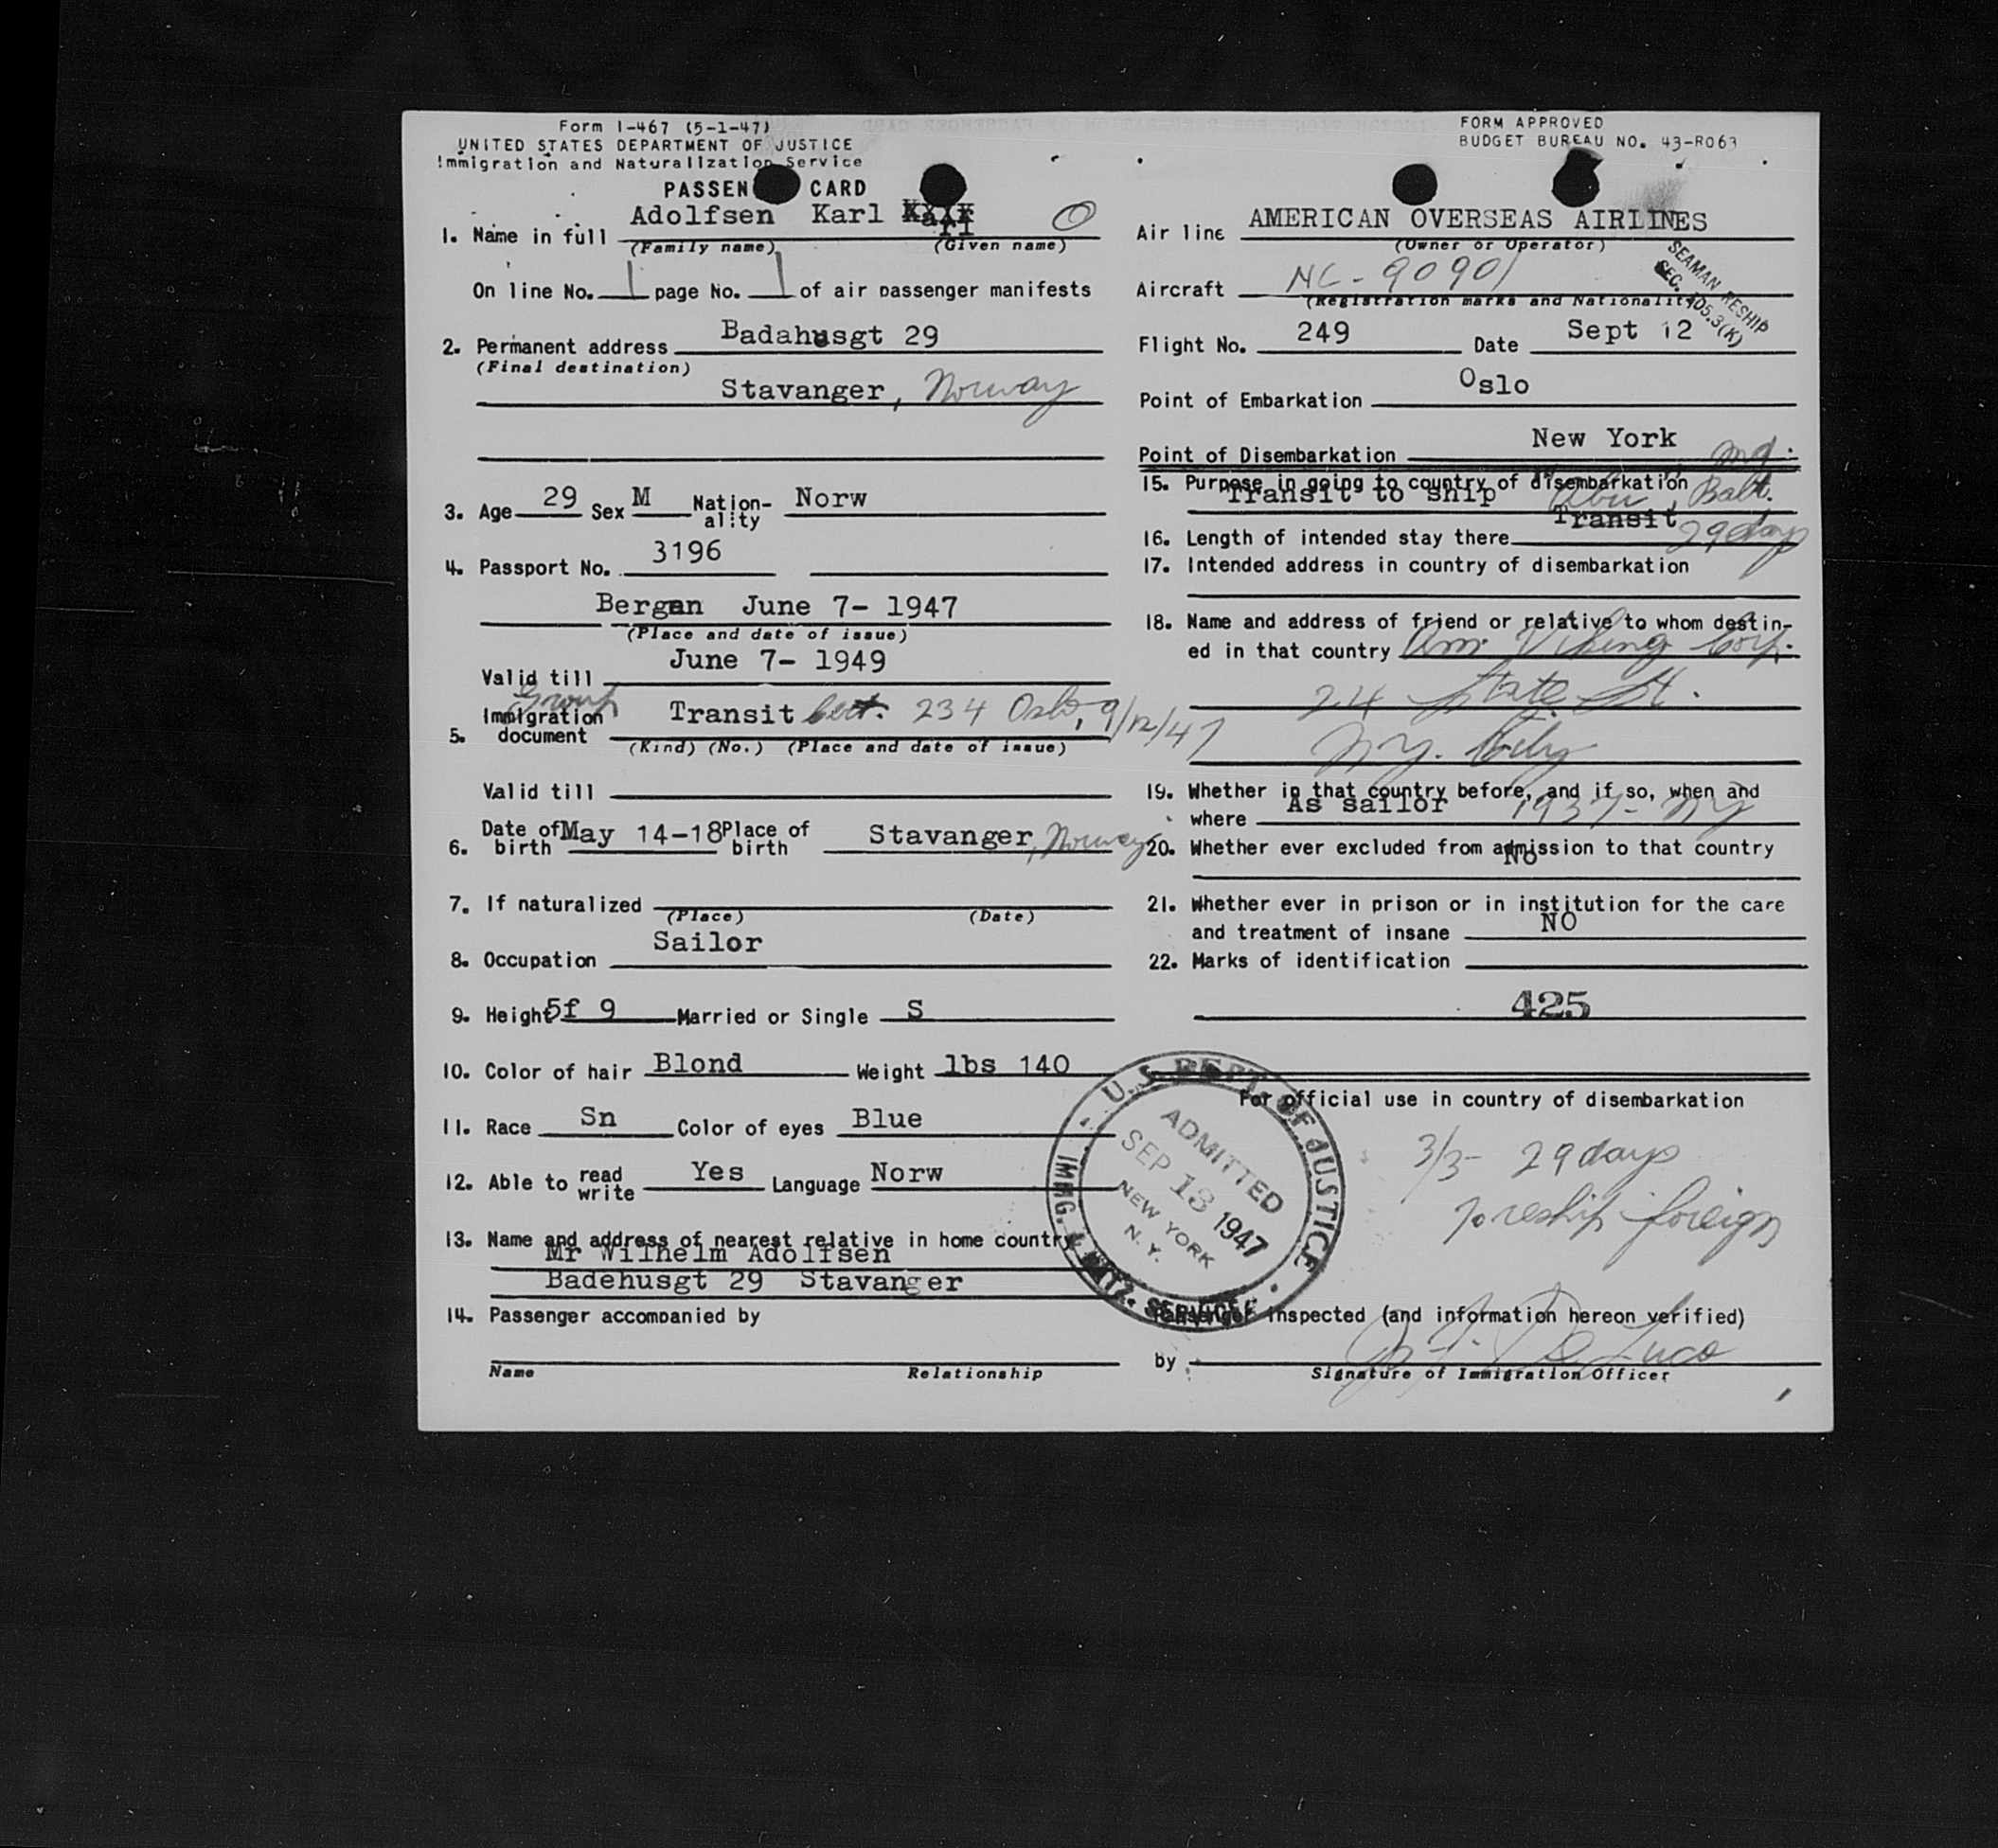 Form I-467 (5-1-47)
UNITED STATES DEPARTMENT OF JUSTICE
Immigration and Naturalization Service
PASSEN CARD
FORM APPROVED
BUDGET BUREAU NO. 43-R063
Adolfsen Karl
1. Name in full
(Family name) (Given name)
On line No. 1 page No. 1 of air passenger manifests
2. Permanent address Badahusgt 29
(Final destination)
Stavanger, Norway
3. Age 29 Sex M Nation-ality Norw
4. Passport No. 3196
Bergen June 7- 1947
(Place and date of issue)
Valid till June 7- 1949
Group
5. Immigration document Transit cert. 234 Oslo, 9/12/47
(Kind) (No.) (Place and date of issue)
Valid till
6. Date of birth May 14-18 Place of birth Stavanger, Norway
7. If naturalized
(Place) (Date)
8. Occupation Sailor
9. Height 5f 9 Married or Single S
10. Color of hair Blond Weight lbs 140
11. Race Sn Color of eyes Blue
12. Able to read write Yes Language Norw
13. Name and address of nearest relative in home country
Mr Wilhelm Adolfsen
Badehusgt 29 Stavanger
14. Passenger accompanied by
Name Relationship
Air line AMERICAN OVERSEAS AIRLINES
(Owner or Operator)
Aircraft NC-90901
(Registration marks and Nationality)
SEAMAN RESHIP
SEC. 105.3(K)
Flight No. 249 Date Sept 12
Point of Embarkation Oslo
Point of Disembarkation New York
15. Purpose in going to country of disembarkation
Transit to ship Balt. Md.
16. Length of intended stay there Transit 29 days
17. Intended address in country of disembarkation
18. Name and address of friend or relative to whom destin-
ed in that country Am. Viking Corp.
24 State St.
N.Y. City
19. Whether in that country before, and if so, when and
where As sailor 1937- NY
20. Whether ever excluded from admission to that country
No
21. Whether ever in prison or in institution for the care
and treatment of insane NO
22. Marks of identification
425
For official use in country of disembarkation
3/3- 29 days
to reship foreign
U.S. DEPT. OF JUSTICE
ADMITTED
SEP 13 1947
NEW YORK
N.Y.
IMMG. & NATZ. SERVICE
Passenger inspected (and information hereon verified)
by
Signature of Immigration Officer